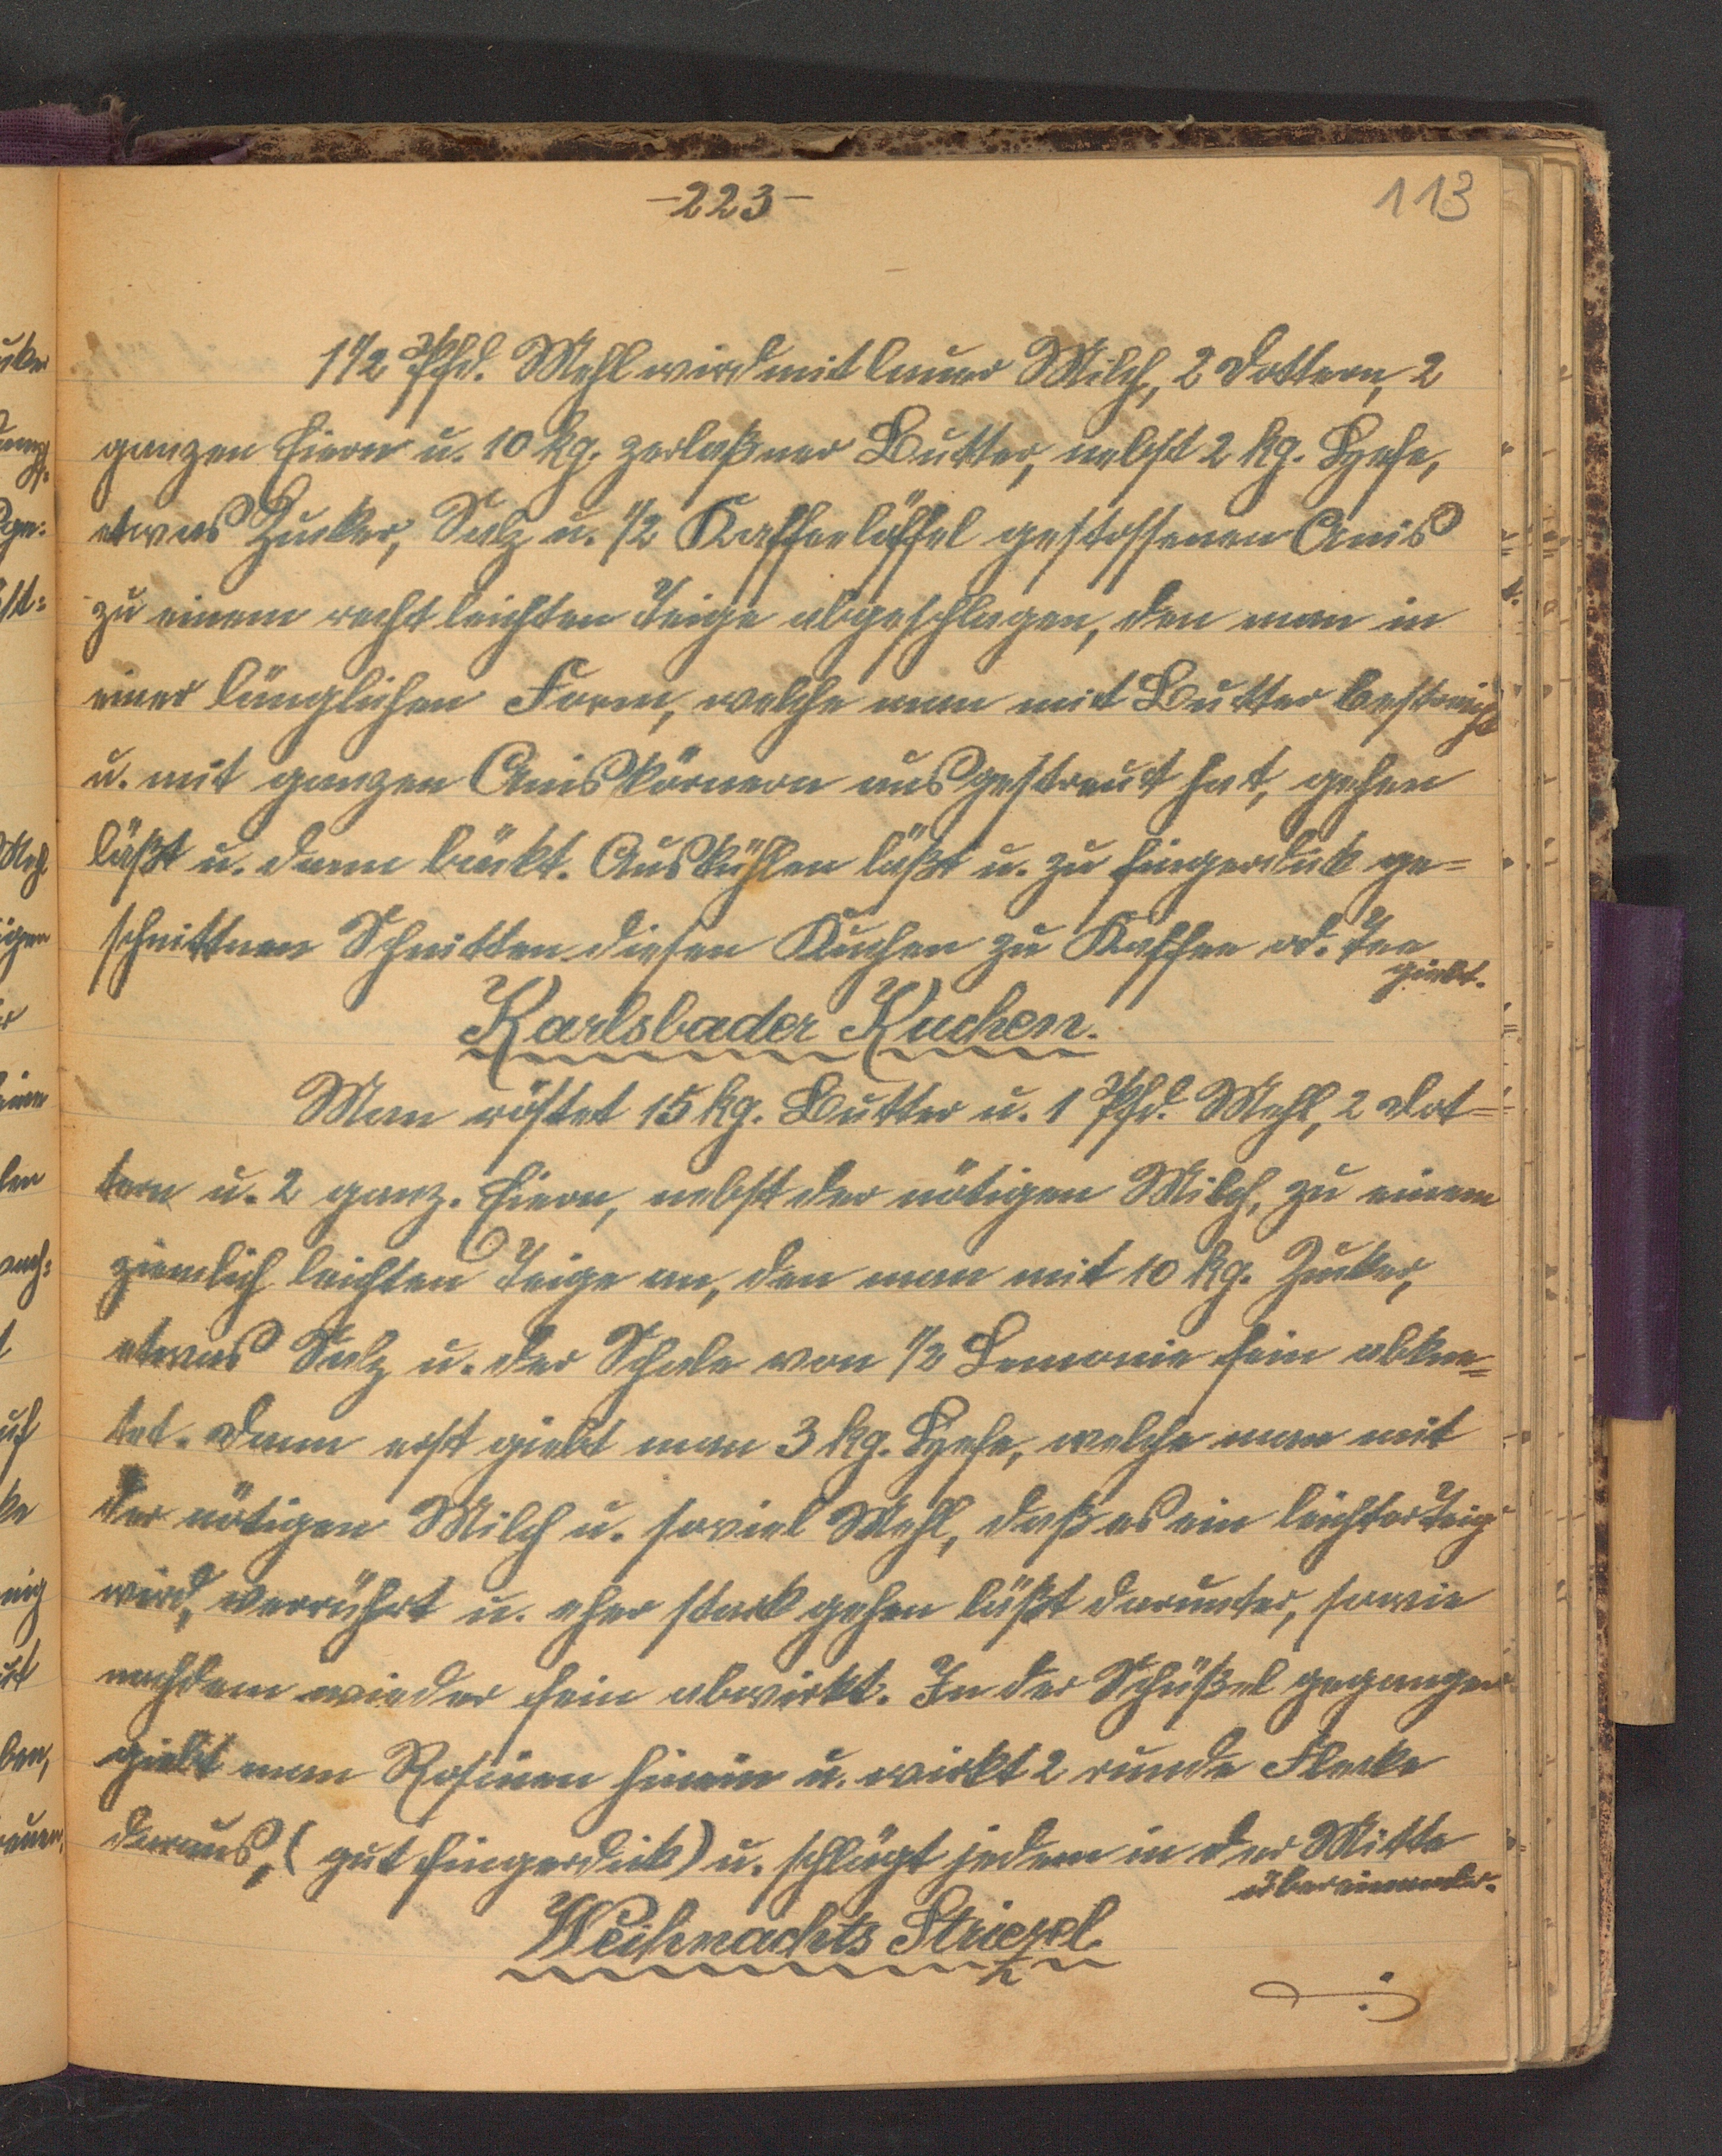 -223-
113
1 1/2 Pfd. Mehl wird mit lauer Milch, 2 Dottern, 2
ganzen Eiern u. 10 kg. zerlaßner Butter, nebst 2 kg. Hefe,
etwas Zucker, Salz u. 1/2 Kaffeelöffel gestossenen Anis
zu einem recht leichten Teige abgeschlagen, den man in
einer länglichen Form, welche man mit Butter bestreicht
u. mit ganzen Aniskörnern ausgestreut hat, gehen
läßt u. dann bäckt. Auskühlen läßt u. zu fingerdick ge=
schnittnen Schnitten diesen Kuchen zu Kaffee od. Tee
giebt.
Karlsbader Kuchen.
Man röstet 15 kg. Butter u. 1 Pfd. Mehl, 2 Dot=
tern u. 2 ganz. Eiern, nebst der nötigen Milch, zu einem
ziemlich leichten Teige an, den man mit 10 kg. Zucker,
etwas Salz u. der Schale von 1/2 Lemonie fein abkne=
tet. Dann erst giebt man 3 kg. Hefe, welche man mit
der nötigen Milch u. soviel Mehl, daß es ein leichter Teig
wird, verrührt u. eher stark gehen läßt darunter, sowie
nachdem wieder fein abwirkt. In der Schüßel gegangen
giebt man Rosinen hinein u. wirkt 2 runde Flecke
daraus, (gut fingerdick) u. schlägt jeden in der Mitte
übereinander.
Weihnachts Striezel.